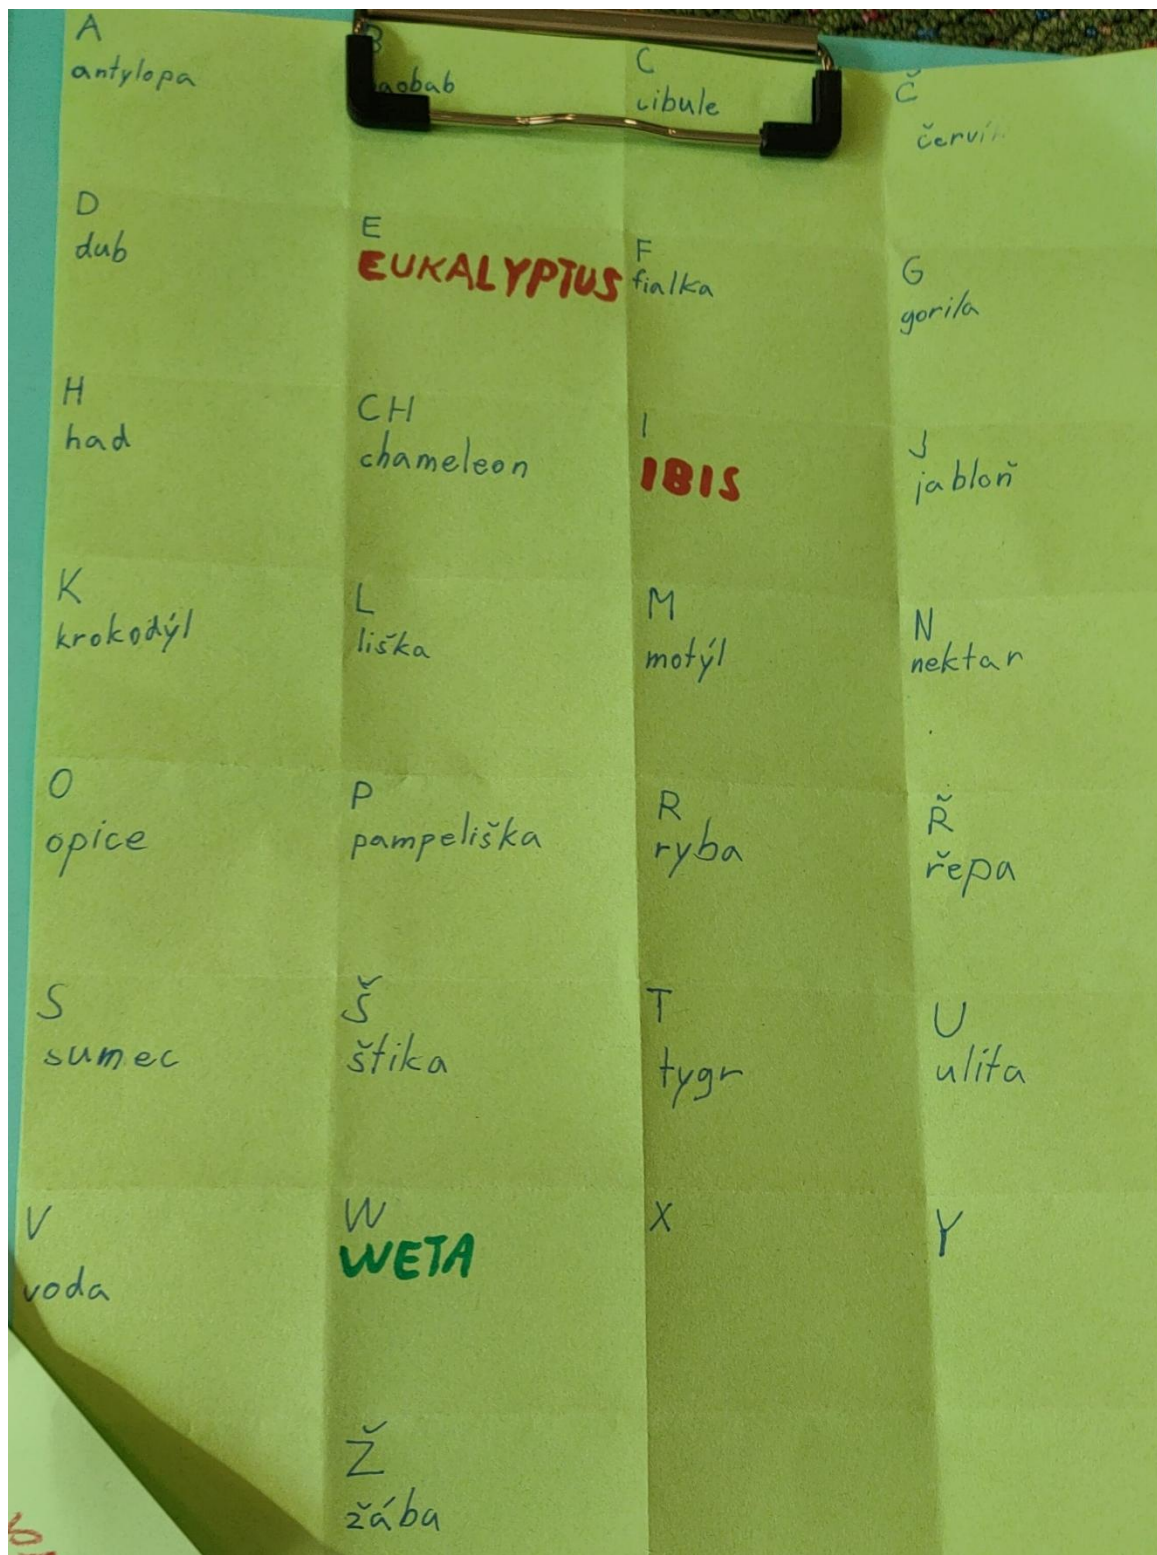 A
antylopa
B
baobab
C
cibule
Č
D
dub
E
EUKALYPTUS
F
fialka
G
gorila
H
had
CH
chameleon
I
IBIS
J
jabloň
K
krokodýl
L
liška
M
motýl
N
nektar
O
opice
P
pampeliška
R
ryba
Ř
řepa
S
sumec
Š
štika
T
tygr
U
ulita
V
voda
W
WETA
X
Y
Ž
žába